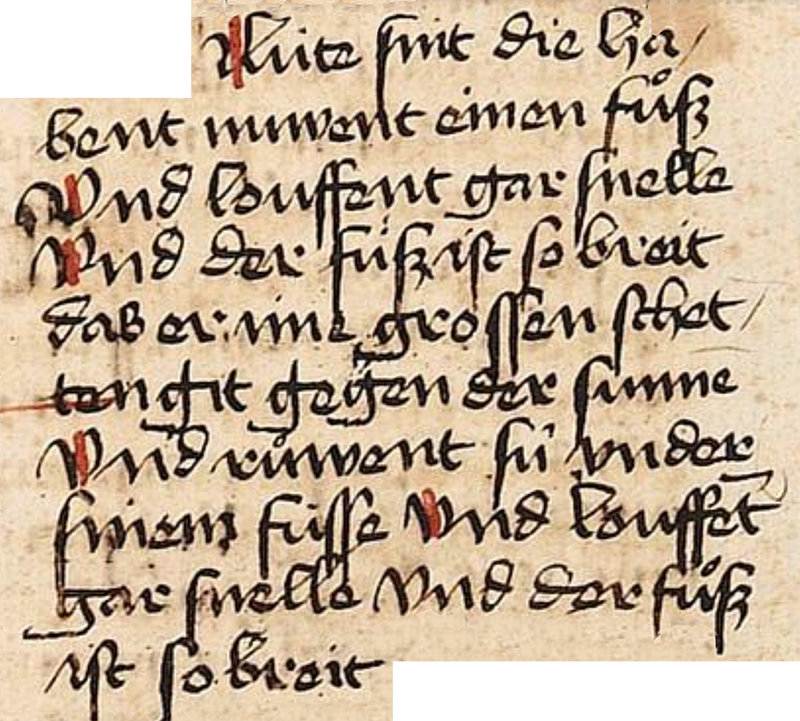 Lúte sint die ha/
bent nuwent einen fuͦß
Vnd louffent gar snelle
Vnd der fuͦß ist so breit
das er ime grossen schet/
ten git gegen der sunne
Vnd ruͦwent sú vnder
sinem fússe Vnd louffet̄
gar snelle Vnd der fuͦß
ist so breit